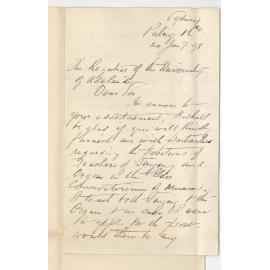 Sydney
20 Jany 98
The Registrar of the University
of Adelaide
Dear Sir,
In answer to
your advertisement I shall
be glad if you will kindly
furnish me with particulars
regarding the positions of
Teachers of Singing and
Organ in the Elder
Conservatorium of Music.
I teach both Singing & the
Organ & in case I were
to apply for the post
would there be any